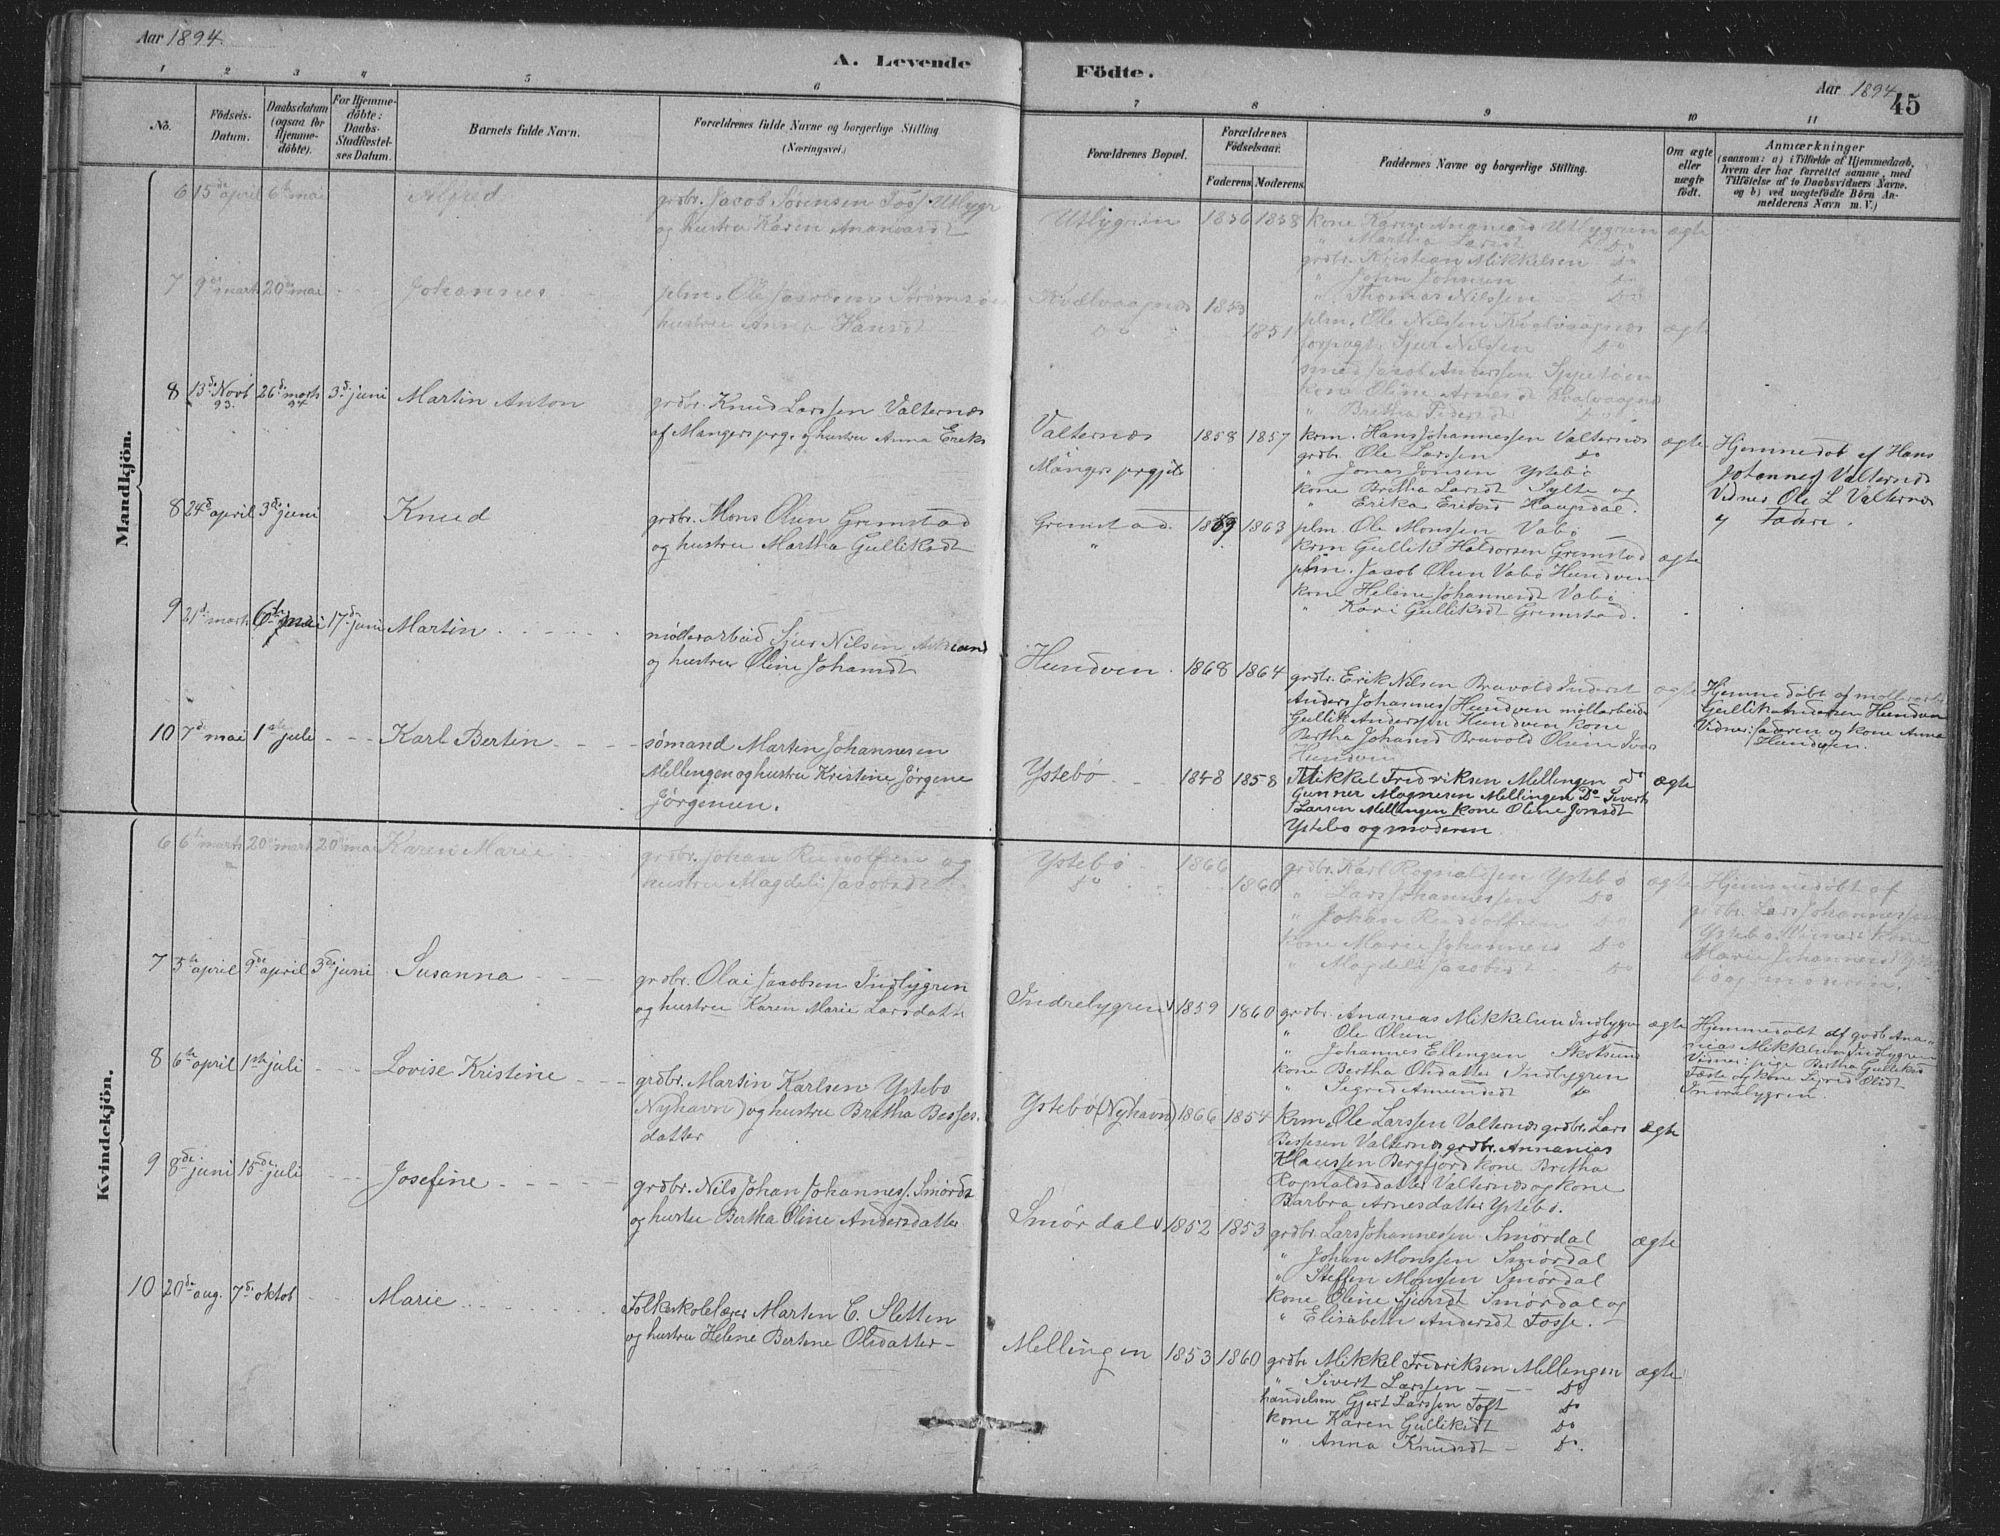 Aar 1894.
A. Levende Födte.
Aar 1894
45
1 2 3 4 5 6 7 8 9 10 11
No.
Födsels-
Datum.
Daabsdatum
(ogsaa for
Hjemme-
döbte).
For Hjemme-
döbte:
Daabs-
Stadfæstel-
ses Datum.
Barnets fulde Navn.
Forældrenes fulde Navne og borgerlige Stilling
(Næringsvei.)
Forældrenes Bopæl.
Forældrenes
Födselsaar.
Faderens. Moderens.
Faddernes Navne og borgerlige Stilling.
Om ægte
eller
uægte
födt.
Anmærkninger
(saasom: a) i Tilfælde af Hjemmedaab,
hvem der har forrettet samme, med
Tilföielse af to Daabsvidners Navne.
og b) ved uægtefödte Börn An-
melderens Navn m. V.)
Mandkjön.
6 15de april 6te mai Alfred
grdbr. Jacob Sørensen Foss. Utlygr
og hustru Karen
Utlygren 1856 1858
kone Karen Utlygren ægte
" Martha Larsdt Do
grdbr. Kristian Mikkelsen Do
" John Johnsen Do
" Thomas Nilssen - Do
7 9de marts 20de mai - - Johannes
plm. Ole Jacobsen
hustru Anna Hansdt
Kvalvaagnæs 1850
Do 1851
plm. Ole Nilssen Kvalvaagnæs ægte
forpagt. Sjur Nilssen Do
smed Jacob Anderssen
kone Oline Arnesdt Kvalvaagnæs
" Britha Pedersdt Do
8 13de Novb 26de marts 3de juni Martin Anton
93. 94
grdbr. Knud Larssen Valternæs
af Mangers prg. og hustru Anna Eriks
Valternæs 1858 1857
Mangers prgjeld
krm. Hans Johannessen Valternæs ægte
grdbr. Ole Larssen Do
" Jonas Jonsen Ystebø
kone Britha Larsdt Sylte og
" Erika Eriksd Haugsdal.
Hjemmedøbt af Hans
Johannes Valternæs
Vidner Ole L Valternæs
og Fader.
8 24de april 3de juni Knud
grdbr. Mons Olsen Gremstad
og hustru Martha Gulliksdt
Gremstad. 1869 1863
"
plm. Ole Monssen Vabø -
krm Gullik Haldorsen Gremstad ægte
plm. Jacob Olsen Vabø Hundven
kone Helene Johannesdt Vabø
" Kari Gulliksdt Gremstad.
9 21de marts 6te mai 17de juni Martin - - - -
møllerarbeid Sjur Nilsen Askeland
og hustru Oline Johansdt
Hundven. 1868 1864
grdbr. Erik Nilsen Bruvold Inderst ægte
Anders Johannes Hundven møllarbeide
Gullik Anderssen Hundven kone
Bertha Johansd Bruvold Olsine
Hundven
Hjemmedøbt af møllarbeid
Gullik Andersen Hundven
Vidner: faderen og kone Anna
Hundven.
10 7de mai 1ste juli - - - Karl Bertin - - - -
sømand Martin Johannesen
Mellengen og hustru Kristine Jørgene
Jørgensen.
Ystebø - - 1848 1858
Mikkel Fredriksen Mellengen Do ægte
Gunner Magnesen Mellingen Do Sivert
Larsen Mellengen kone Oline Jonsdt
Ystebø og moderen.
Kvindekjön.
6 6te marts 20de marts 20de mai Karen Marie - -
grdbr. Johan Rudolfsen og
hustru Magdeli Jacobsdt
Ystebø 1866
Do 1860
grdbr. Karl Rognaldsen Ystebø ægte
" Lars Johannessen Do
" Johan Rudolfsen Do
kone Marie Johannesd Do
" Magdeli Jacobsdt Do
Hjemmedøbt af
grdbr. Lars Johannessen
Ystebø Vidner: kone
Marie Johannesdt Yste
bø og moderen.
7 5te april 9de april 3de juni Susanna - - -
grdbr. Olai Jacobsen Indlygren
og hustru Karen Marie Larsdatter
Indrelygren 1859 1860
grdbr. Ananias Mikkelsen Indlygren ægte
" Ole Olsen Do
" Johannes Ellingsen Skotsund
kone Bertha Olsdatter Indlygren
" Segred Amundsdt Do
Hjemmedøbt af grdb. Ana-
nias Mikkelsen Indlygren
Vidner: pige Bertha Gulliksd
Fæste og kone Sigred Olsdt
Indrelygren.
8 6te april 1ste juli - - - Lovise Kristine - -
grdbr. Martin Karlsen Ystebø
(Nyhavn) og hustru Britha Besses-
datter
Ystebø (Nyhavn) 1866 1854
krm. Ole Larssen Valternæs grdbr. Lars ægte
Bessesen Valternæs grdbr. Annanias
Klaussen Bergfjord kone Britha
Rognaldsdatter Valternæs og kone
Barbra Arnesdatter Ystebø.
9 8de juni 15de juli - - - Josefine - - - - -
grdbr. Nils Johan Johannes. Smørdal
og hustru Bertha Oline Andersdatter.
Smørdal 1852 1853
grdbr. Lars Johannessen Smørdal ægte
" Johan Monssen Smørdal
" Steffen Monssen Smørdal
kone Oline Sjursdt Smørdal og
" Elisabeth Andersdt Fosse. -
10 20de aug. 7de oktob - - - Marie - - - - - -
Folkeskolelærer Marten C. Sletten
og hustru Helene Bertine Olsdatter -
Mellingen 1853 1860
grdbr Mikkel Fredriksen Mellengen ægte
" Sivert Larssen - - Do
handelsm Gjert Larssen Toft Do
kone Karen Gulliksdt Do
" Anna Knudsdt - Do